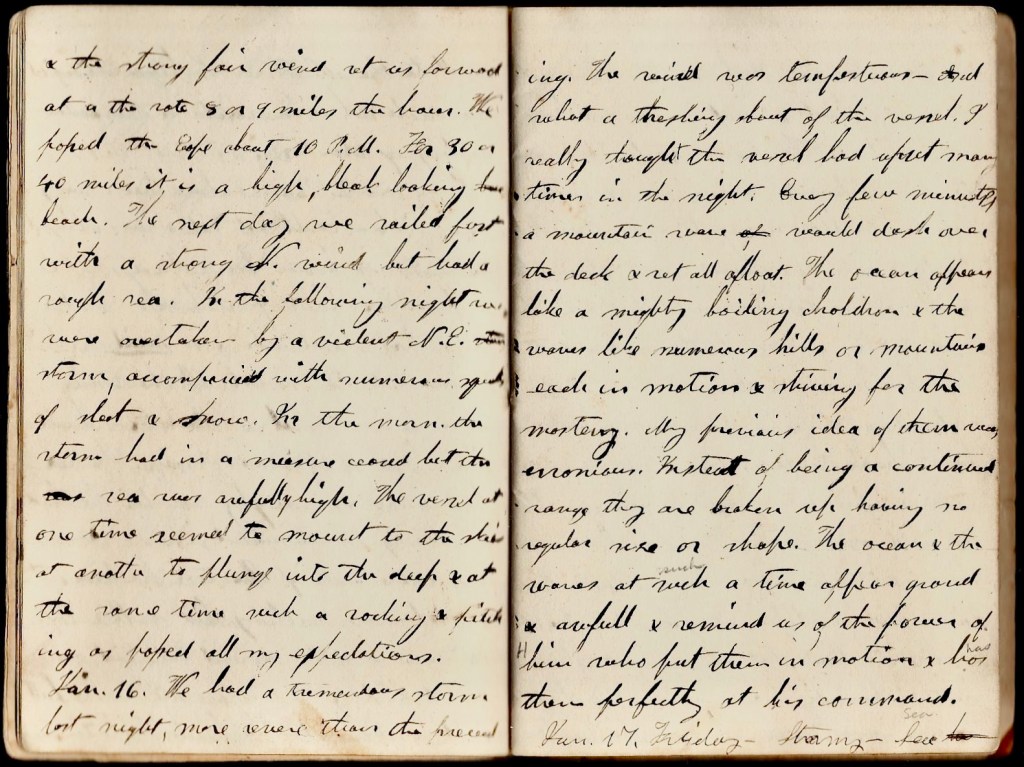 & the strong fair wind set us forward
at a the rate 8 or 9 miles the hour. We
passed the Cape about 10 P.M. For 30 or
40 miles it is a high, bleak looking
beach. The next day we sailed fast
with a strong N. wind but had a
rough sea. In the following night we
were overtaken by a violent N.E.
storm, accompanied with numerous squalls
of sleet & snow. In the morn. the
storm had in a measure ceased but the
sea was awfully high. The vessel at
one time seemed to mount to the skies
at another to plunge into the deep & at
the same time such a rocking & pitch
ing as passed all my expectations.
Jan. 16. We had a tremendous storm
last night, more severe than the preceed
ing. The wind was tempestuous - and
what a threshing about of the vessel. I
really thought the vessel had upset many
times in the night. Every few minutes
a mountain wave of would dash over
the deck & set all afloat. The ocean appears
like a mighty boiling choldron & the
waves like numerous hills or mountains
each in motion & striving for the
mastery. My previous idea of them was
erronious. Instead of being a continued
range they are broken up having no
regular size or shape. The ocean & the
waves at such such a time appear grand
& awfull & remind us of the power of
him who put them in motion & has has
them perfectly at his command.
Jan. 17. Friday - Stormy - Sea Sea